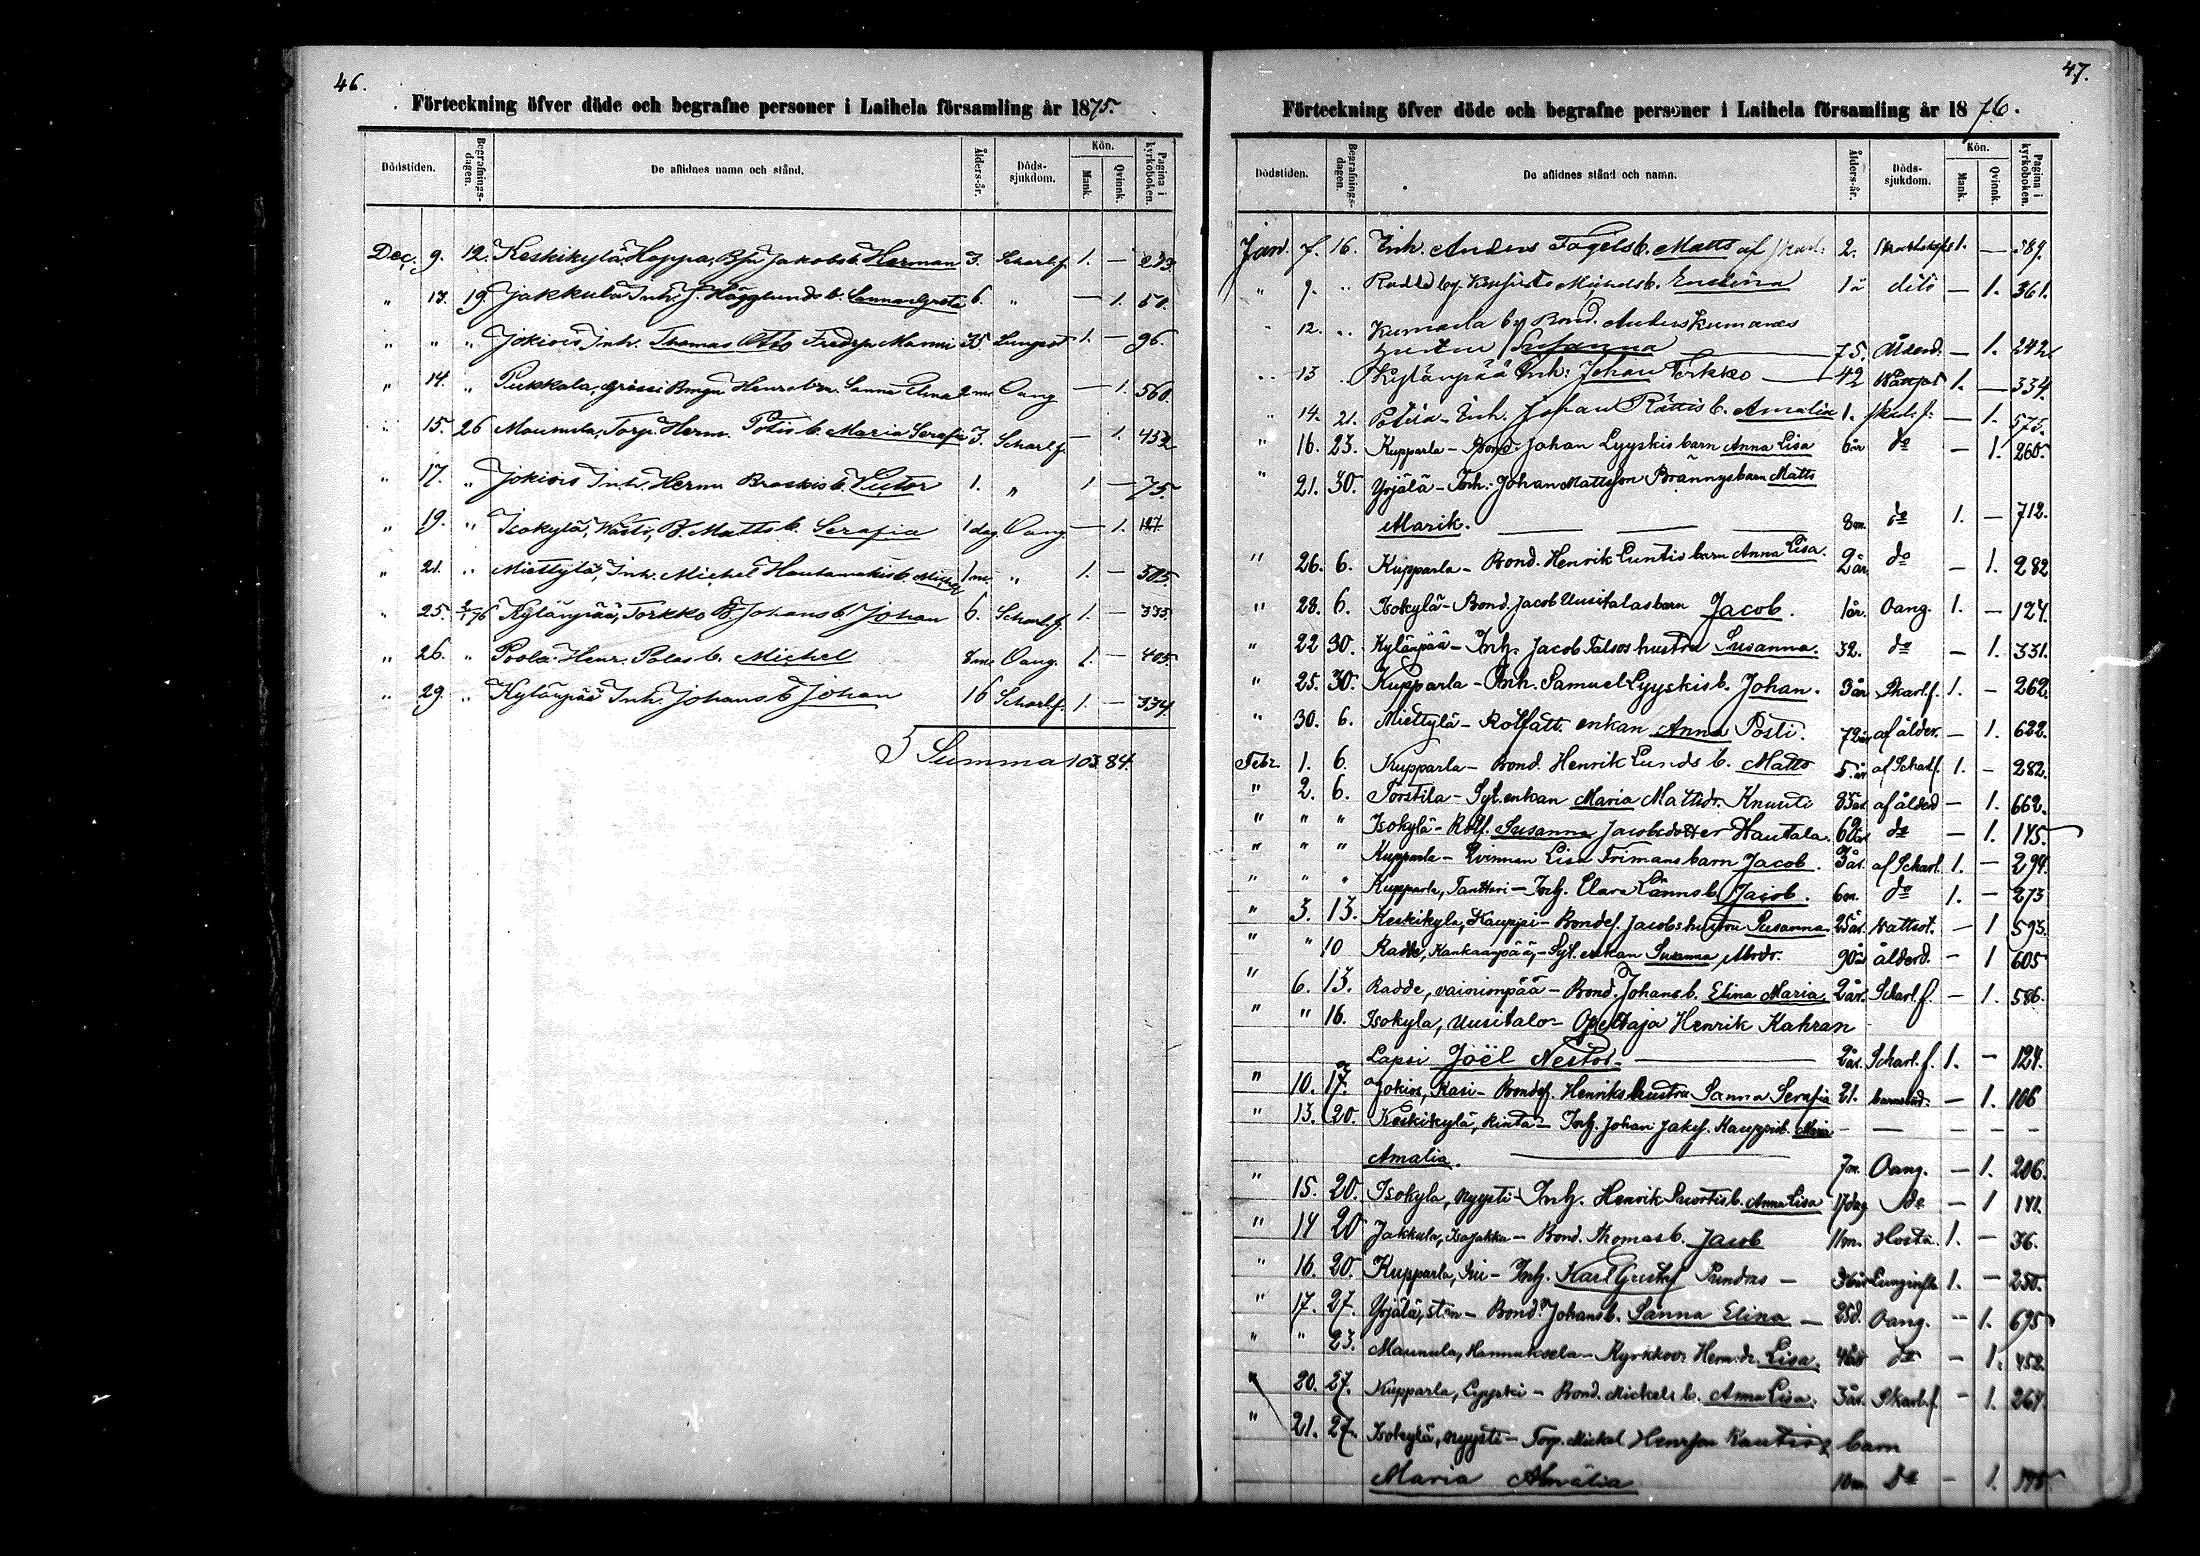 46.
Förteckning öfver döde och begrafne personer i Laihela församling år 1875.
Dödstiden. Begrafningsdagen. De aflidnes namn och stånd. Ålders-år. Dödssjukdom. Kön. Mank. Qvinnk. Pagina i kyrkoboken.
Dec. 9. 12. Keskikylä, Hoppa, Jakobs b. Herman 3. Scharl.f. 1. — 233
" 13. 19. Jakkula Inh. J. Hägglunds b. Sanna Greta 6. " — 1. 51.
" " " Jokiois Inh. Thomas Otto Manni 35. Lungsot 1. — 96.
" 14. " Pukkala, Sanna Elina 2 m. Oang — 1. 560.
" 15. 26 Maunula, Torp. Herm. Potis b. Maria Serafia 3. Scharl.f. — 1. 452
" 17. " Jokiois Inh. Herm. b. Victor 1. " 1 — 75.
" 19. " Isokylä, B. Matts b. Serafia 1 dag. Oang — 1. 127
" 21. " Miettylä, Inh. Michel Hautamäkis b. Michel 1 m. " 1. — 505
" 25. 2/1 76 Kylänpää, Torkko B. Johans b. Johan 6. Scharl.f. 1 — 333.
" 26. " Poola Henr. Polas b. Michel 8 m. Oang. 1. — 405
" 29. " Kylänpää Inh. Johans b. Johan 16 Scharl.f. 1. — 334.
Summa 103 84.
47.
Förteckning öfver döde och begrafne personer i Laihela församling år 1876.
Dödstiden. Begrafningsdagen. De aflidnes stånd och namn. Ålders-år. Dödssjukdom. Kön. Mank. Qvinnk. Pagina i kyrkoboken.
Jan. 7. 16. Inh. Anders Fagels b. Matts af 2. 1. — 589.
" 9. " Radde by. b. Eustina 1 å dito — 1. 361.
" 12. " Kumarla by Bond. Anders Kumaras
hustru Susanna — 75. Ålderd. — 1. 242
" 13 " Kylänpää Inh. Johan Torkko — 42 1. — 334.
" 14. 21. Inh. Johan Rättis b. Amalia 1. Skarl.f. — 1. 575.
" 16. 23. Kupparla — Bond. Johan Lyyskis barn Anna Lisa 6 år do — 1. 260.
" 21. 30. Yrjälä — Inh. Johan Mattsson Brännys barn Matts
Marik. — 8 m. do 1. — 712.
" 26. 6. Kupparla — Bond. Henrik Luntis barn Anna Lisa. 2 år do — 1. 282
" 28. 6. Isokylä — Bond. Jacob Uusitalas barn Jacob. 1 år. Oang. 1. — 124.
" 22 30. Kylänpää — Inh. Jacob Talsos hustru Susanna. 32. do — 1. 331.
" 25. 30. Kupparla — Inh. Samuel Lyyskis b. Johan. 3 år Skarl.f. 1. — 262.
" 30. 6. Miettylä — Rotfatt. enkan Anna Posti. 72 år af ålder. — 1. 622.
Febr. 1. 6. Kupparla — Bond. Henrik Lunds b. Matts 5 år af Scharl.f. 1. — 282.
" 2. 6. Torstila — Syt. enkan Maria Mattsdr. Knuuti 85 år. af ålderd — 1. 662.
" " " Isokylä — Rotf. Susanna Jacobsdotter Hautala. 60 år do — 1. 145
" " " Kupparla — Qvinnan Lisa Frimans barn Jacob. 3 år. af Scharl. 1. — 294.
" " " Kupparla, Tanttari — Inh. Clara Länns b. Jacob. 6 m. do 1. — 273
" 3. 13. Keskikyla, Kauppi — Bondes. Jacobs hustru Susanna. 25 år. Vattsot. — 1 593.
" " 10 Radde, Kankaanpää, — Syt. enkan Susanna 90 år ålderd. — 1 605
" 6. 13. Radde, vainionpää — Bond. Johans b. Elina Maria 2 år. Scharl.f. — 1. 586.
" " 16. Isokyla, Uusitalo — Opettaja Henrik Kahran
Lapsi Joël Nestor. — 2 år. Scharl.f. 1. — 124.
" 10. 17. Jokios, Kasi — Bondes. Henriks hustru Sanna Serafia 21. barnsäd. — 1. 106
" 13. 20. Keskikylä, Rinta — Inh. Johan Jakss. Kauppis b. Maria — — — — —
Amalia. — 7 m. Oang. — 1. 206.
" 15. 20. Isokyla, nyysti — Inh. Henrik b. Anna Lisa 17 dag do — 1 141.
" 14 20 Jakkula, Isojakka — Bond. Thomas b. Jacob 11 m. Hosta. 1. — 36.
" 16. 20. Kupparla, — Inh. Karl Gustaf — 36 år Lunginfl. 1. — 250.
" 17. 27. Yrjälä, sten — Bond. Johans b. Sanna Elina — 25 d. Oang. — 1. 695
" " 23. Maunula, Hannuksela — Kyrkkov. Herm. dr. Lisa. do — 1. 452.
" 20. 27. Kupparla, Lyyski — Bond. Mickels b. Anna Lisa. 3 år. Skarl.f. — 1. 264.
" 21. 27. Isokylä, nyysti — Torp. Mickel Henrsson barn
Maria Amalia 10 m Do — 1.